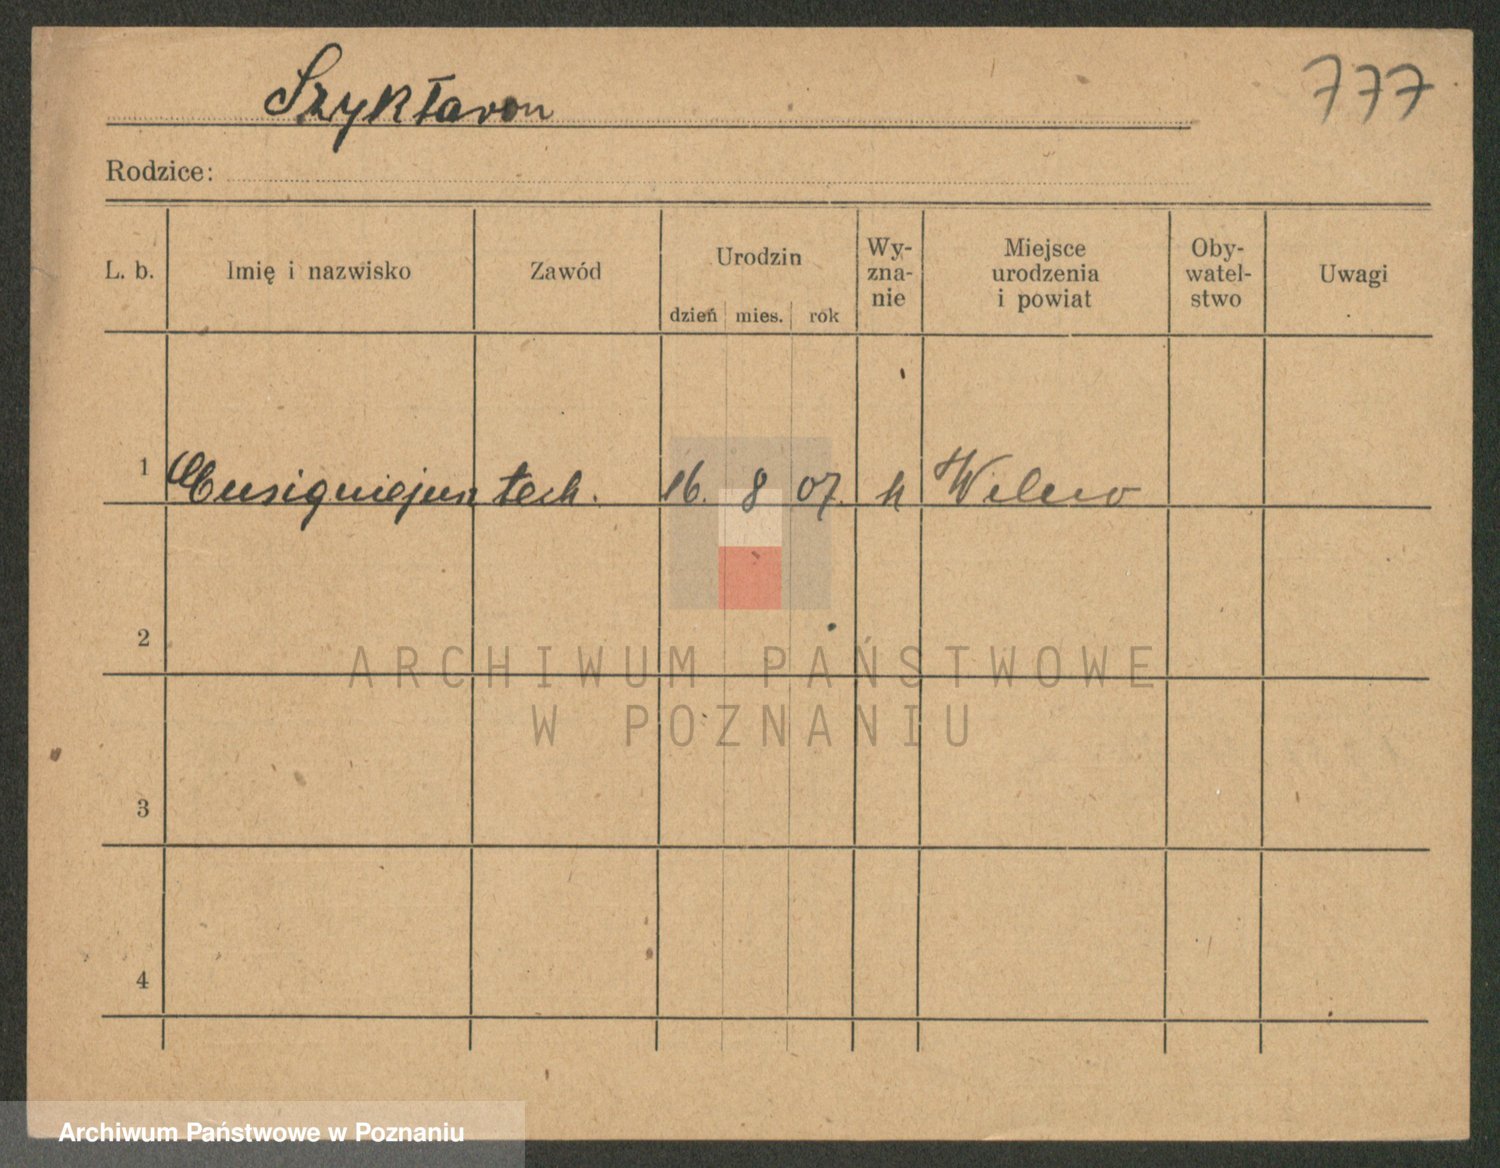 Szykłaron
777
Rodzice:
L. b.
Imię i nazwisko
Zawód
Urodzin
dzień mies. rok
Wy-
zna-
nie
Miejsce
urodzenia
i powiat
Oby-
watel-
stwo
Uwagi
1 tech. 16. 8 07. Wilno
2
3
4
ARCHIWUM PAŃSTWOWE
W POZNANIU
Archiwum Państwowe w Poznaniu